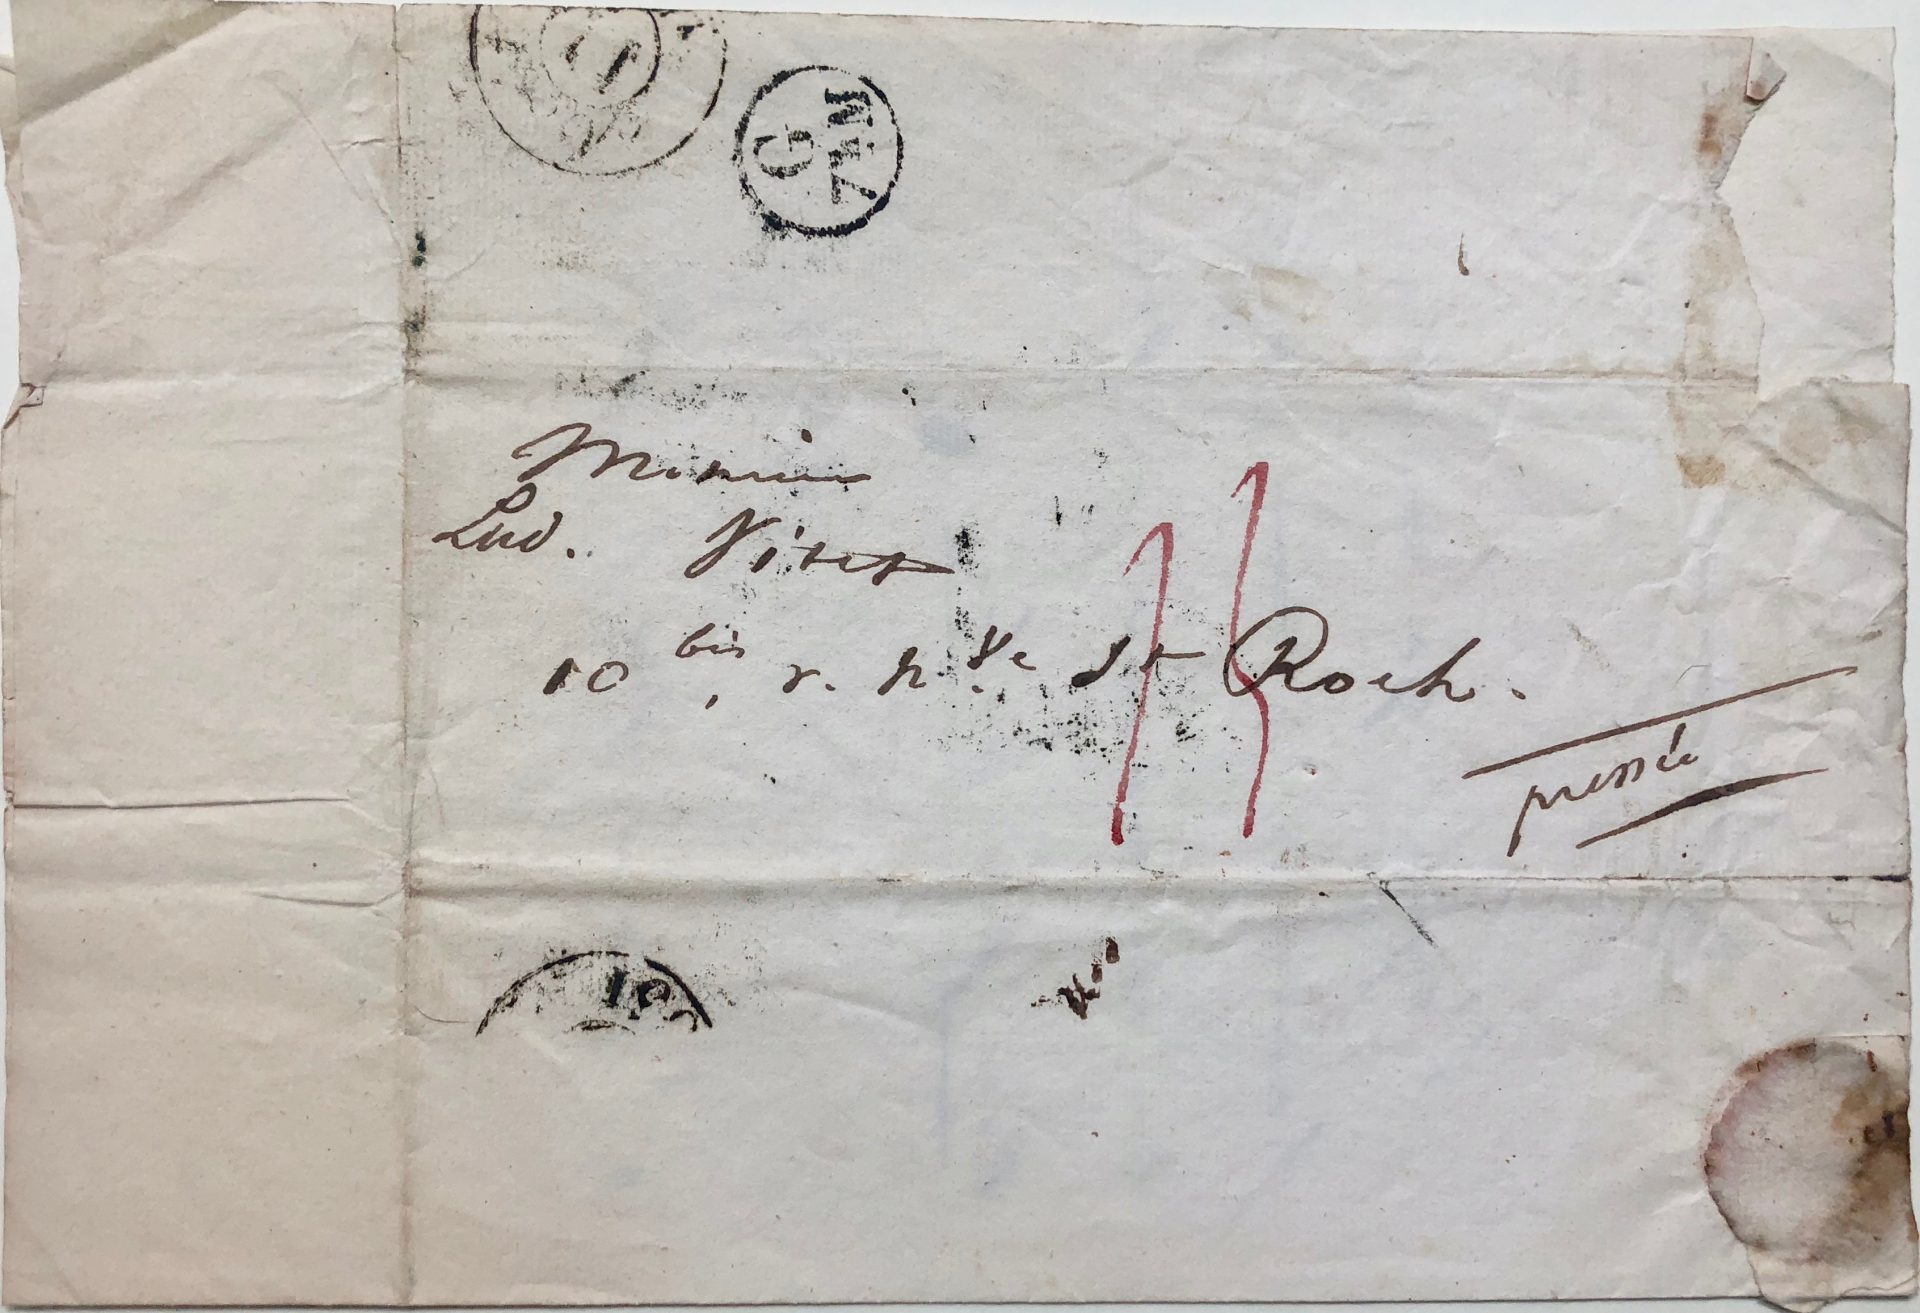 G
7E M
Monsieur
Lud. Vitet
10 bis, r. nve St Roch.
pressée